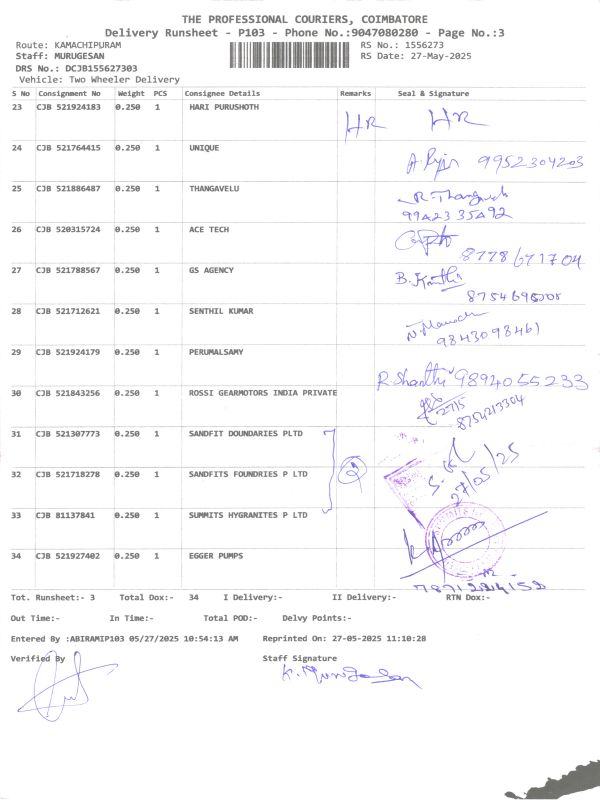 THE PROFESSIONAL COURIERS, COIMBATORE
Delivery Runsheet - P103 - Phone No.:9047080280 - Page No.:3
Route: KAMACHIPURAM RS No.: 1556273
Staff: MURUGESAN RS Date: 27-May-2025
DRS No.: DCJB155627303
Vehicle: Two Wheeler Delivery
S No Consignment No Weight PCS Consignee Details Remarks Seal & Signature
23 CJB 521924183 0.250 1 HARI PURUSHOTH HR HR
24 CJB 521764415 0.250 1 UNIQUE 9952304203
25 CJB 521886487 0.250 1 THANGAVELU R. Thangavel
9942335492
26 CJB 520315724 0.250 1 ACE TECH
8778671704
27 CJB 521788567 0.250 1 GS AGENCY B. Kanthi
28 CJB 521712621 0.250 1 SENTHIL KUMAR
9843098461
29 CJB 521924179 0.250 1 PERUMALSAMY R. Shanthi 9894055233
30 CJB 521843256 0.250 1 ROSSI GEARMOTORS INDIA PRIVATE 27/5
8754213304
31 CJB 521307773 0.250 1 SANDFIT DOUNDARIES PLTD
27/05/25
32 CJB 521718278 0.250 1 SANDFITS FOUNDRIES P LTD
33 CJB 81137841 0.250 1 SUMMITS HYGRANITES P LTD
34 CJB 521927402 0.250 1 EGGER PUMPS
Tot. Runsheet:- 3 Total Dox:- 34 I Delivery:- II Delivery:- RTN Dox:-
Out Time:- In Time:- Total POD:- Delvy Points:-
Entered By :ABIRAMIP103 05/27/2025 10:54:13 AM Reprinted On: 27-05-2025 11:10:28
Verified By Staff Signature
K. Murugesan